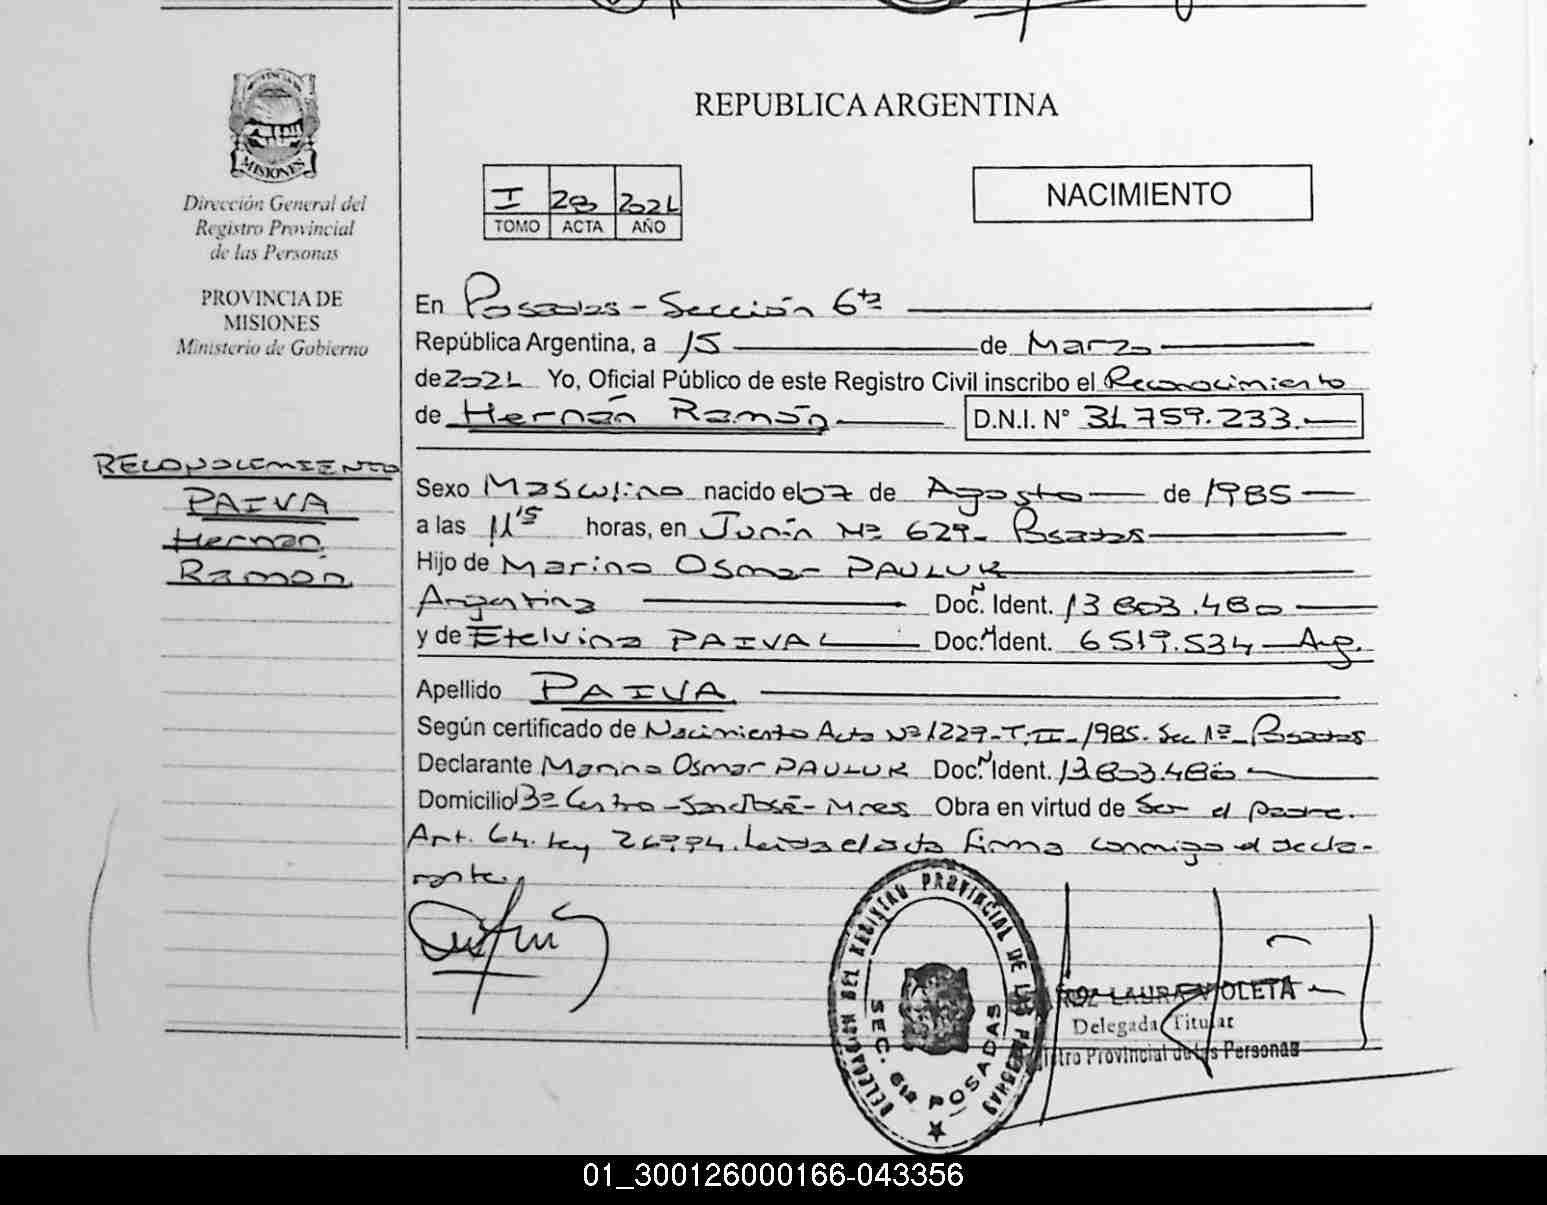 PROVINCIA DE
MISIONES
Dirección General del
Registro Provincial
de las Personas
PROVINCIA DE
MISIONES
Ministerio de Gobierno
RECONOCIMIENTO
PAIVA
Hernán
Ramón
REPUBLICA ARGENTINA
I 28 2021
TOMO ACTA AÑO
NACIMIENTO
En Posadas - Sección 6ta
República Argentina, a 15 de Marzo
de 2021 Yo, Oficial Público de este Registro Civil inscribo el Reconocimiento
de Hernán Ramón D.N.I. N° 31.759.233.
Sexo Masculino nacido el 07 de Agosto de 1985
a las 11'15 horas, en Junín Nº 629- Posadas
Hijo de Marino Osmar PAULUK
Argentina Doc. N Ident. 13.803.480
y de Etelvina PAIVA Doc. N Ident. 6.519.534 - Arg.
Apellido PAIVA
Según certificado de Nacimiento Acta Nº 1229-T.II-1985. Sec 1º- Posadas
Declarante Marino Osmar PAULUK Doc. N Ident. 13.803.480
Domicilio Bº Centro - San José - Mnes Obra en virtud de Ser el padre.
Art. 64. Ley 26994. Leída el acta firma conmigo el decla-
rante.
DELEGACION DEL REGISTRO PROVINCIAL DE LAS PERSONAS
SEC. 6ta POSADAS
LAURA VIOLETA
Delegada Titular
Registro Provincial de las Personas
01_300126000166-043356